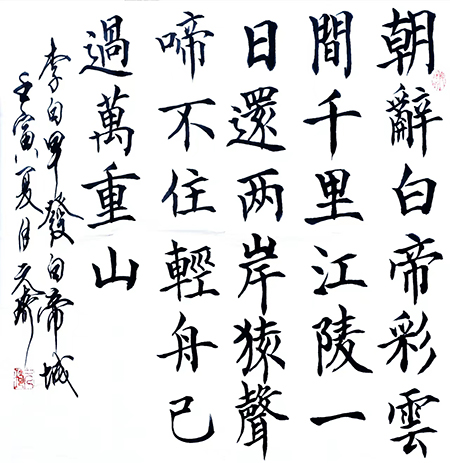 朝辭白帝彩雲
間千里江陵一
日還两岸猿聲
啼不住輕舟已
過萬重山
李白早發白帝城
壬寅夏月